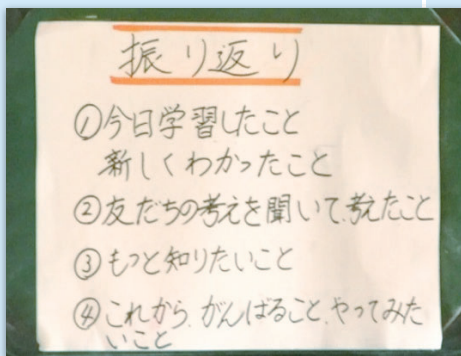 振り返り
①今日学習したこと
新しくわかったこと
②友だちの考えを聞いて、考えたこと
③もっと知りたいこと
④これから、がんばること、やってみた
いこと